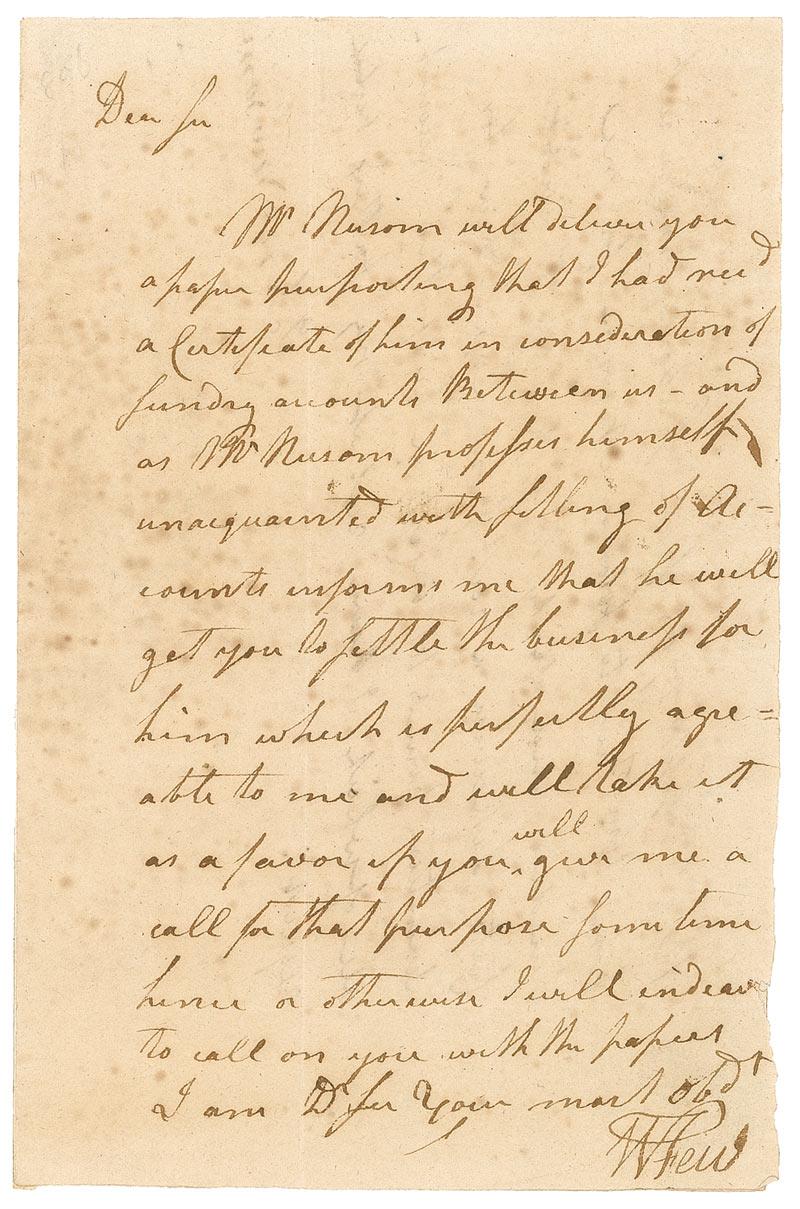 Dear Sir
Mr Nusom will deliver you
a paper purporting that I had recd
a Certificate of him in consideration of
sundry accounts Between us - and
as Mr Nusom professes himself
unacquainted with settling of Ac=
counts informs me that he will
get you to settle the business for
him which is perfectly agre=
able to me and will take it
as a favor if you will give me a
call for that purpose some time
hence or otherwise I will endeav
to call on you with the papers
I am Dr Sir Your most Obdt
W Few